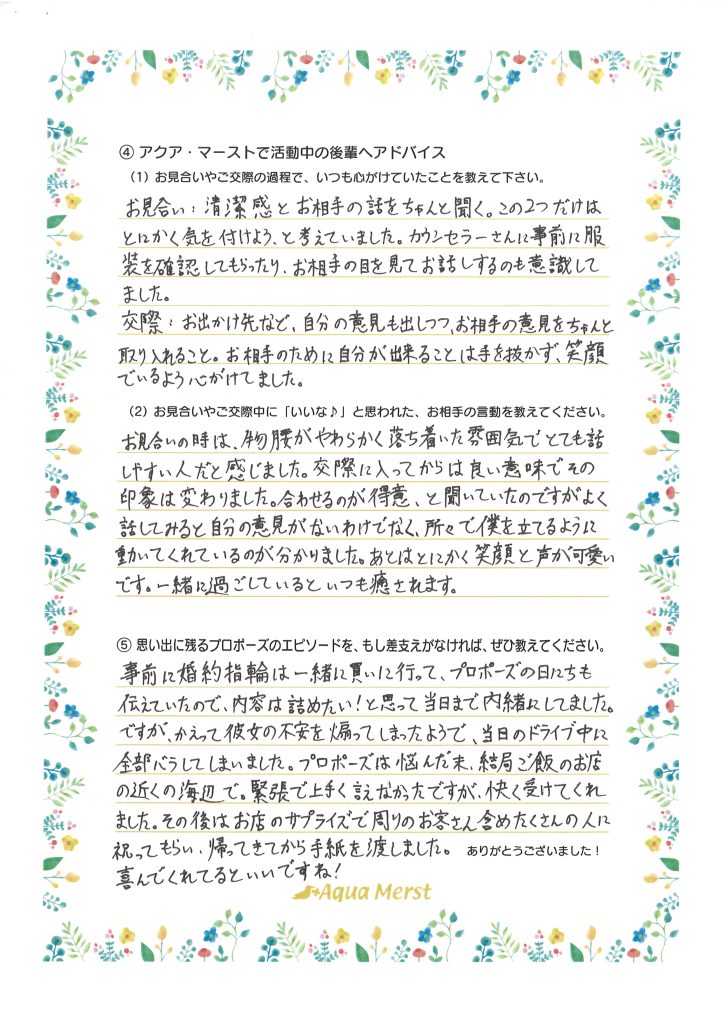 ④ アクア・マーストで活動中の後輩へアドバイス
（1）お見合いやご交際の過程で、いつも心がけていたことを教えて下さい。
お見合い：清潔感とお相手の話をちゃんと聞く。この2つだけは
とにかく気を付けよう、と考えていました。カウンセラーさんに事前に服
装を確認してもらったり、お相手の目を見てお話しするのも意識して
ました。
交際：お出かけ先など、自分の意見も出しつつ、お相手の意見をちゃんと
取り入れること。お相手のために自分が出来ることは手を抜かず、笑顔
でいるよう心がけてました。
（2）お見合いやご交際中に「いいな♪」と思われた、お相手の言動を教えてください。
お見合いの時は、物腰がやわらかく落ち着いた雰囲気でとても話
しやすい人だと感じました。交際に入ってからは良い意味でその
印象は変わりました。合わせるのが得意、と聞いていたのですがよく
話してみると自分の意見がないわけでなく、所々で僕を立てるように
動いてくれているのが分かりました。あとはとにかく笑顔と声が可愛い
です。一緒に過ごしているといつも癒されます。
⑤ 思い出に残るプロポーズのエピソードを、もし差支えがなければ、ぜひ教えてください。
事前に婚約指輪は一緒に買いに行って、プロポーズの日にちも
伝えていたので、内容は詰めたい！と思って当日まで内緒にしてました。
ですが、かえって彼女の不安を煽ってしまったようで、当日のドライブ中に
全部バラしてしまいました。プロポーズは悩んだ末、結局ご飯のお店
の近くの海辺で。緊張で上手く言えなかったですが、快く受けてくれ
ました。その後はお店のサプライズで周りのお客さん含めたくさんの人に
祝ってもらい、帰ってきてから手紙を渡しました。 ありがとうございました！
喜んでくれてるといいですね！
Aqua Merst